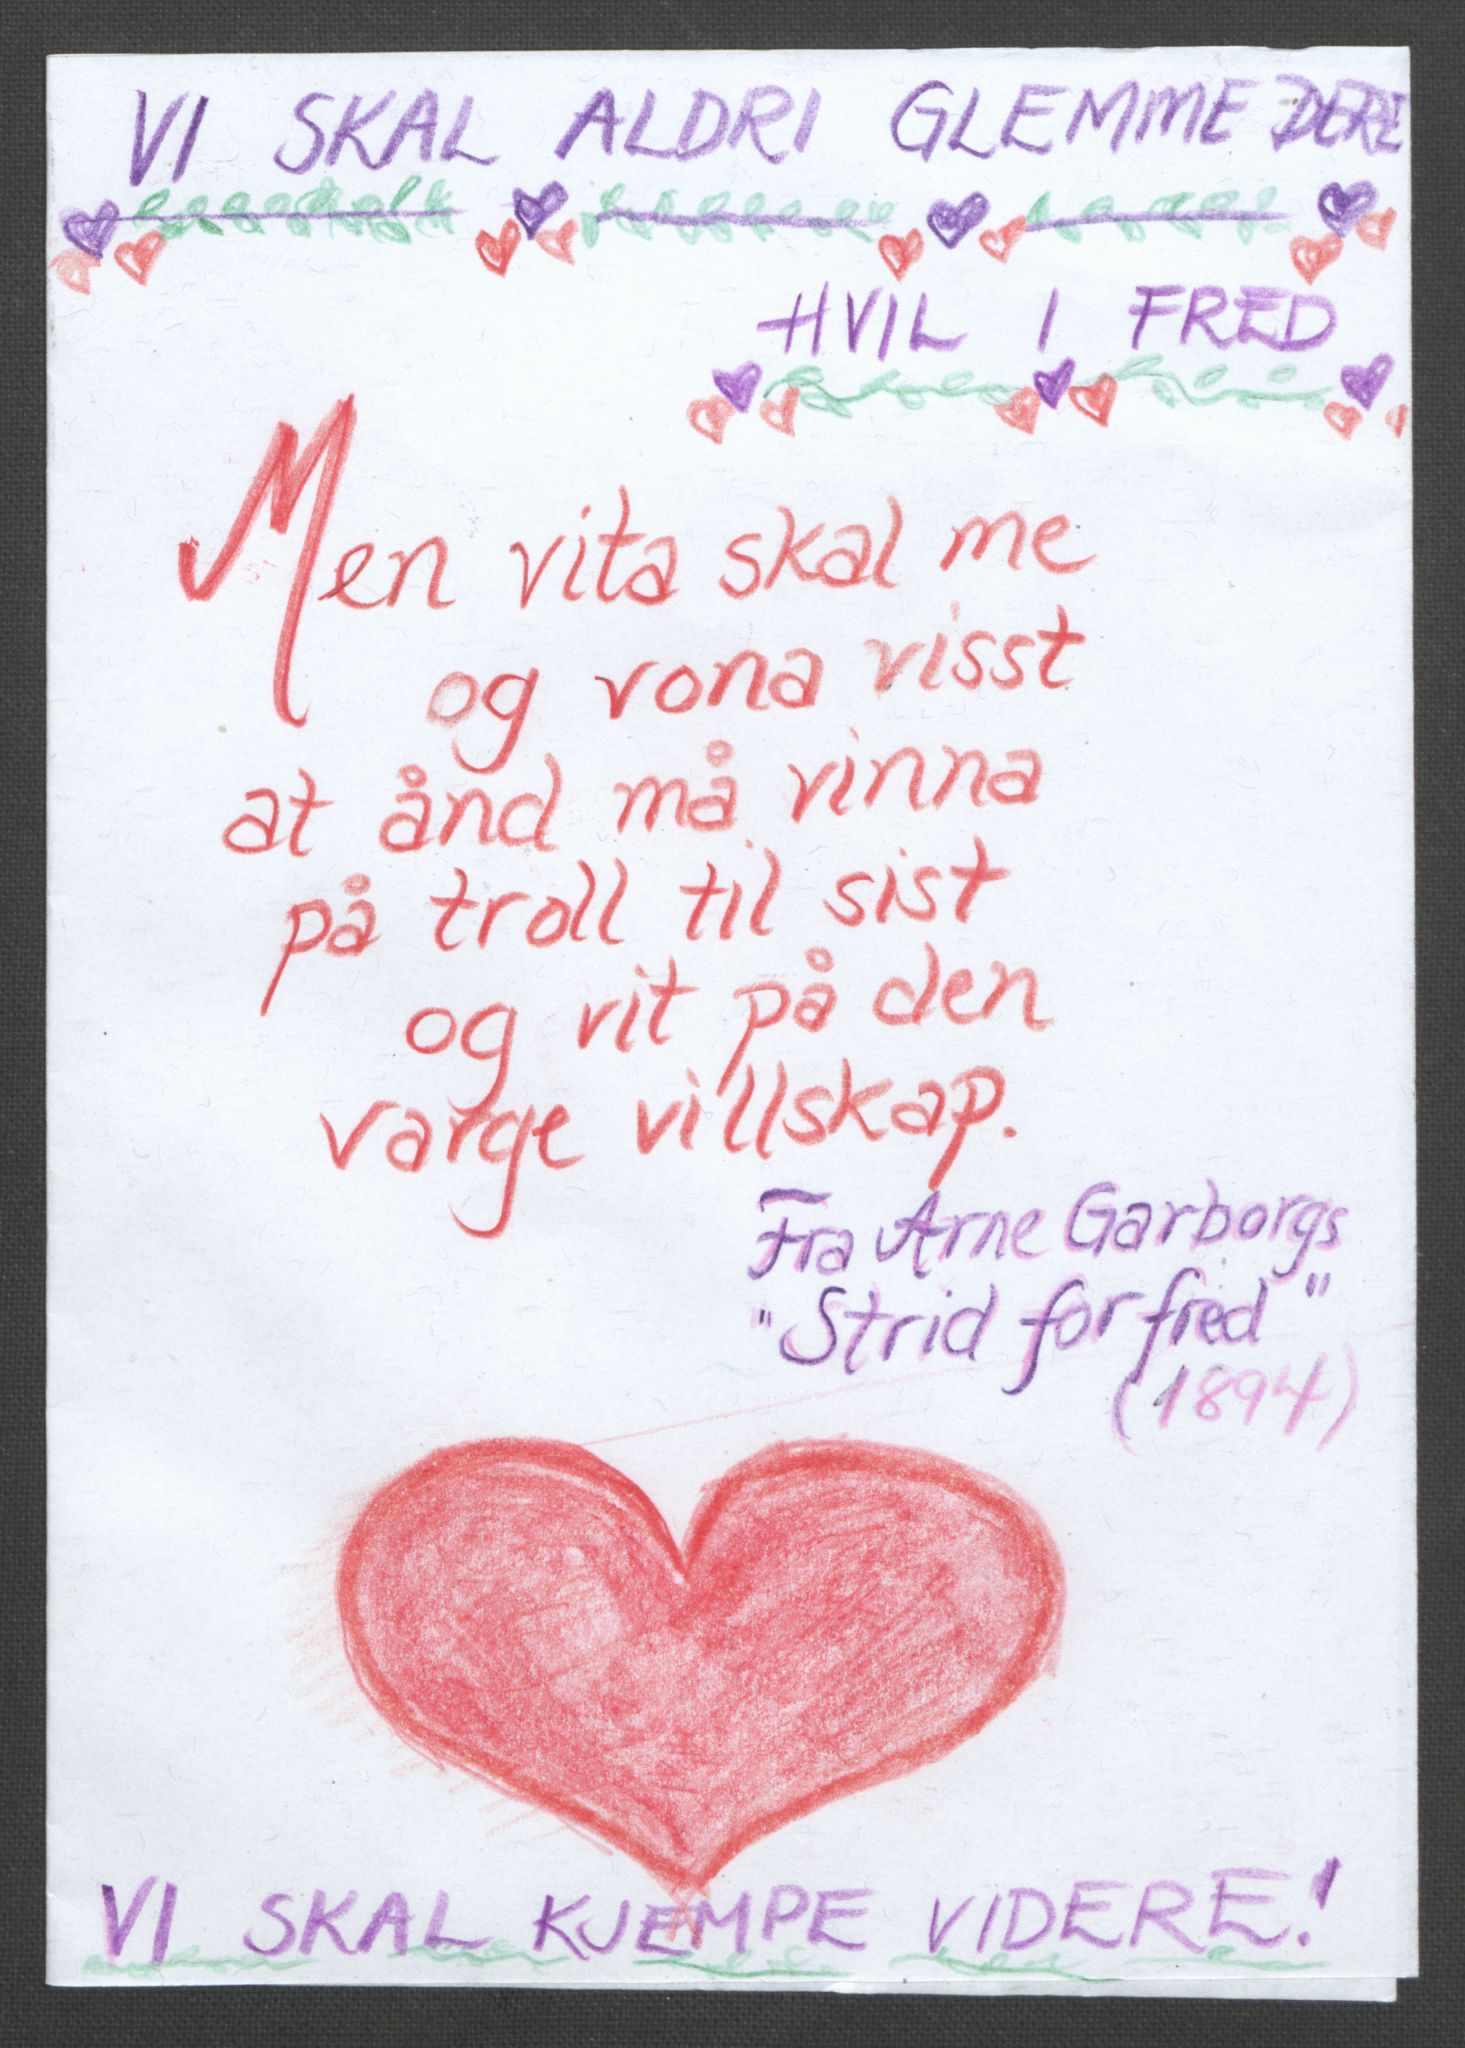 VI SKAL ALDRI GLEMME DERE
HVIL I FRED
Men vita skal me
og vona visst
at ånd må vinna
på troll til sist
og vit på den
varge villskap.
Fra Arne Garborgs
"Strid for fred"
(1894)
VI SKAL KJEMPE VIDERE!